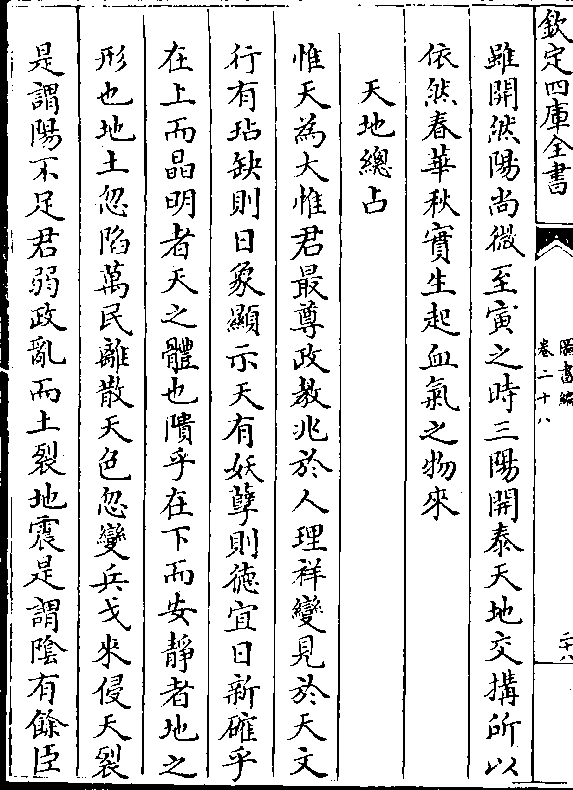 欽定四庫全書
圖書編
卷二十八
二十八
雖開然陽尚微至寅之時三陽開泰天地交搆所以
依然春華秋實生起血氣之物來
天地總占
惟天為大惟君最尊政教兆於人理祥變見於天文
行有玷缺則日象顯示天有妖孽則德宜日新確乎
在上而晶明者天之體也隤乎在下而安靜者地之
形也地土忽陷萬民離散天色忽變兵戈來侵天裂
是謂陽不足君弱政亂而土裂地震是謂陰有餘臣